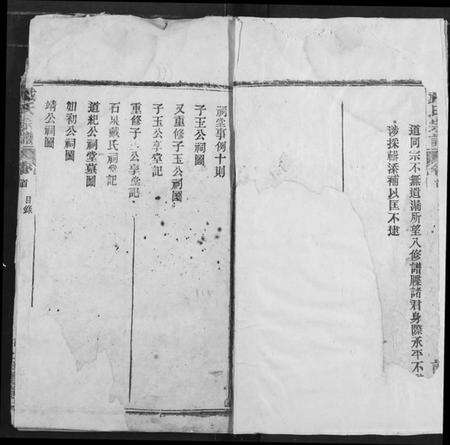 道同宗不無遺漏所望入修譜牒諸君身際承平不
涉採緝添補以匡不逮
祠堂事例十則
子玉公祠圖
又重修子玉公祠圖
子玉公享堂記
重修子玉公享堂記
石泉戴氏祠堂記
道紀公祠堂墓圖
如初公祠圖
靖公祠圖
首
目錄